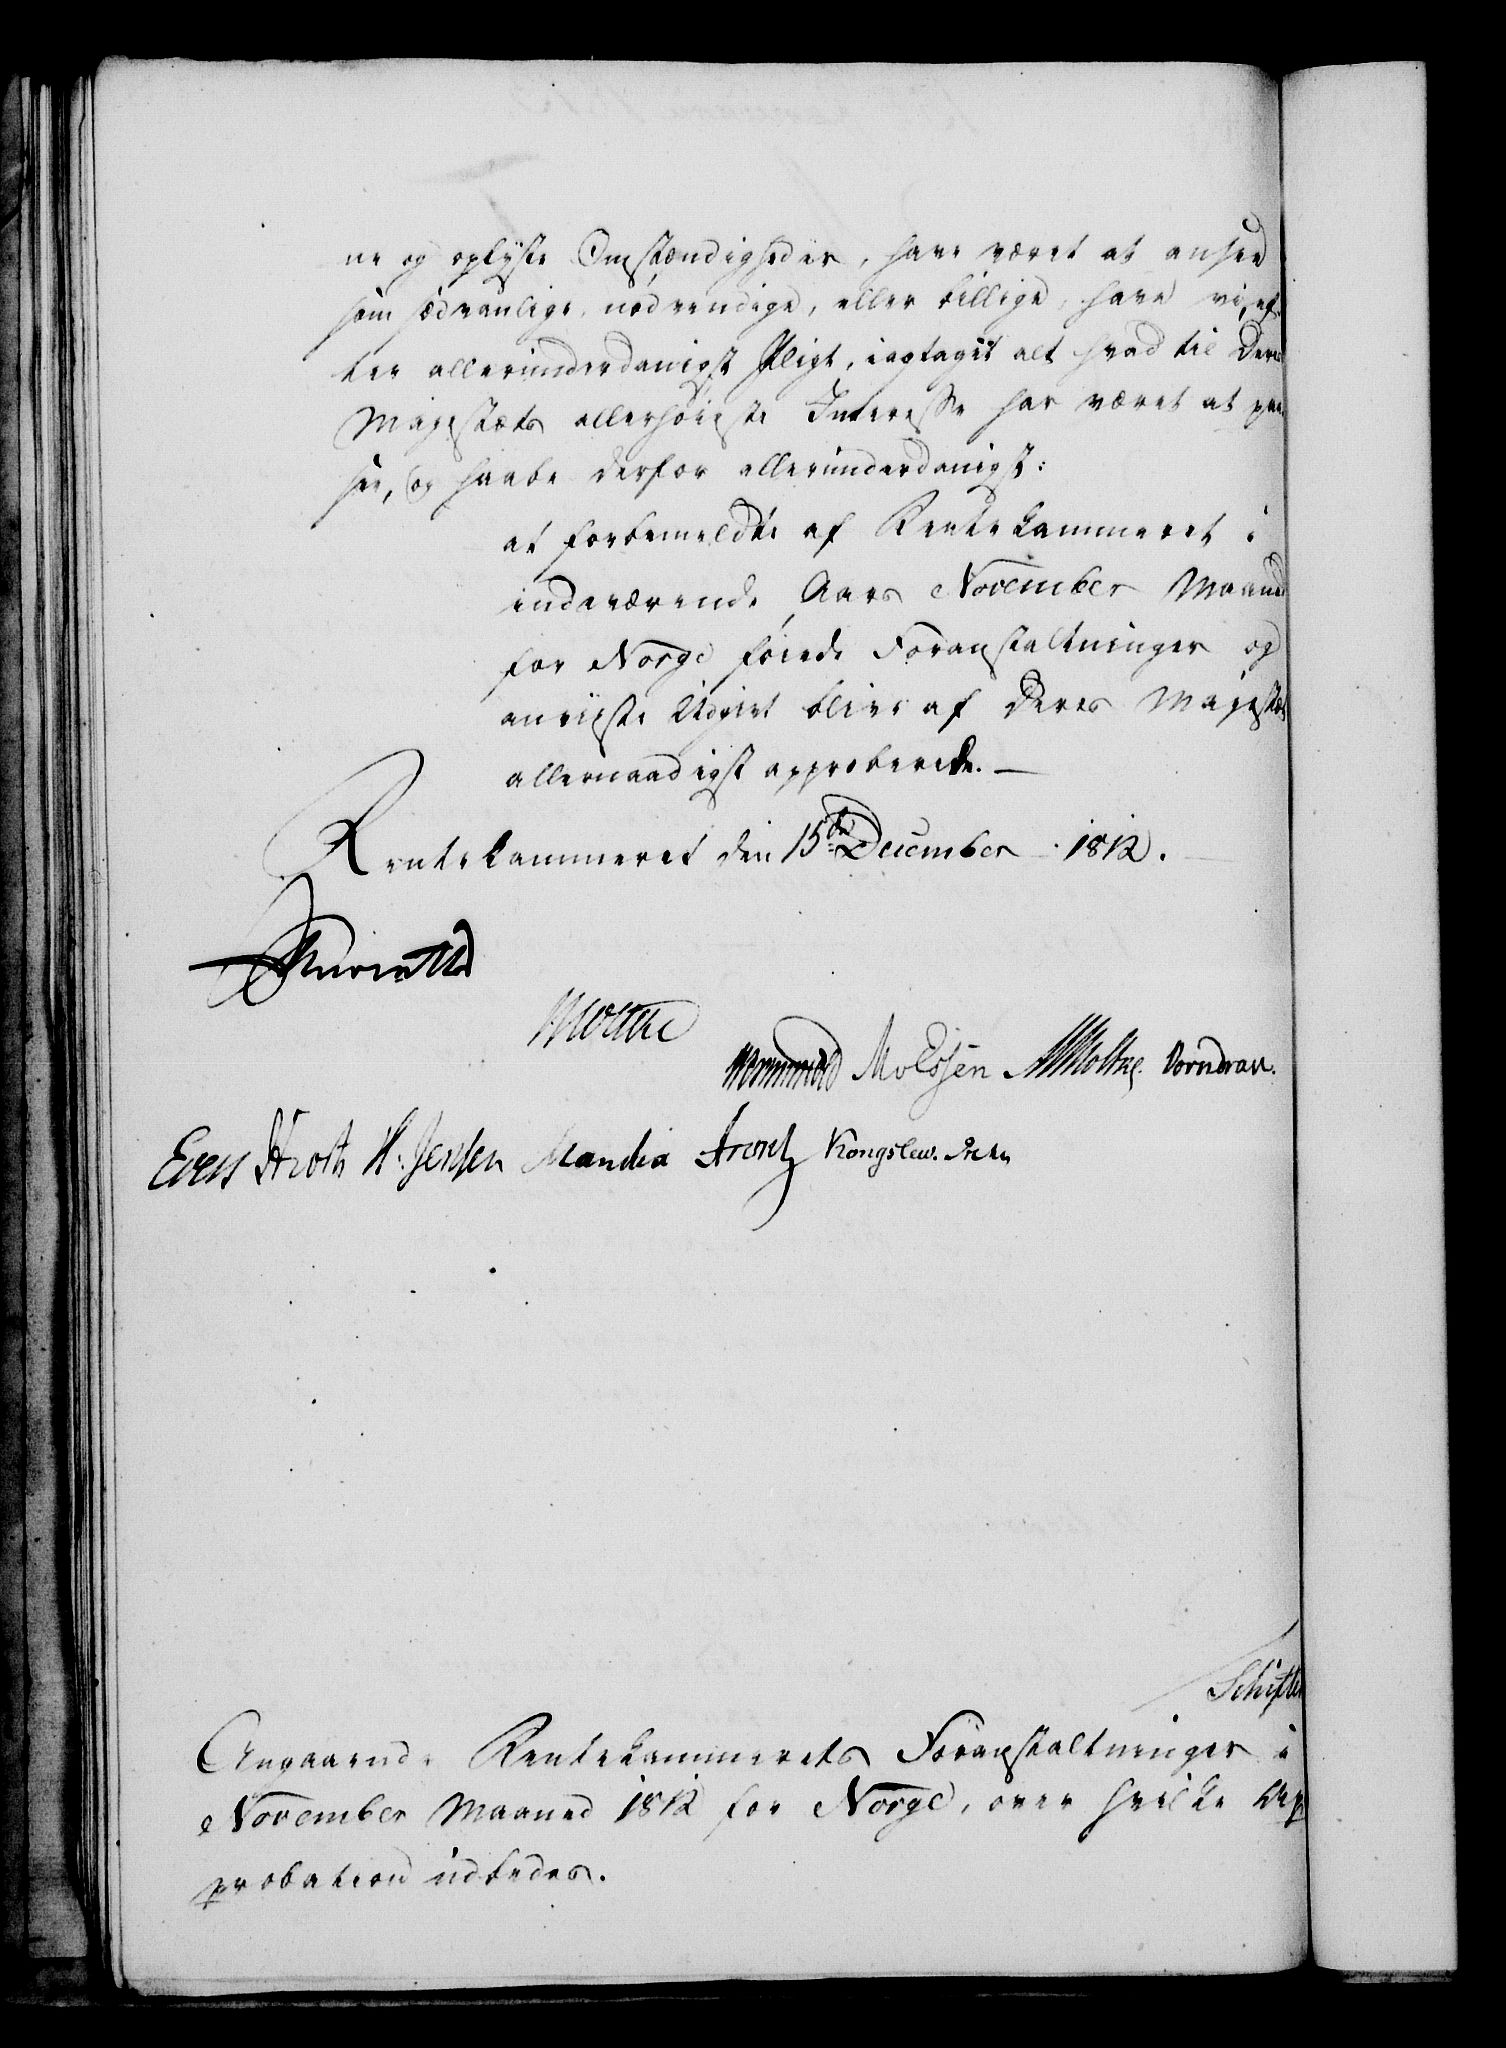 ne og oplyste Omstændigheder, have været at ansee
som sædvanlige, nødvendige, eller billige, have vi, ef-
ter allerunderdanigst Pligt, iagtaget alt hvad til Deres
Majestæts allerhøieste Interesse har været at paa-
see, og haabe derfor allerunderdanigst:
at forbemeldte af Rentekammeret i
indeværende Aars November Maaned
for Norge føiede Foranstaltninger og
anviiste Udgivt bliver af Deres Majestæt
allernaadigst approberede. —
Rentekammeret den 15de December 1812.
Moltke
Wormskiold Molssen Moltke. Vorndran.
Evers Hroth H. Jensen Mandix Arentz Kongslew.
Schifter
Angaaende Rentekammerets Foranstaltninger i
November Maaned 1812 for Norge, over hvilke Ap
probation udbedes.